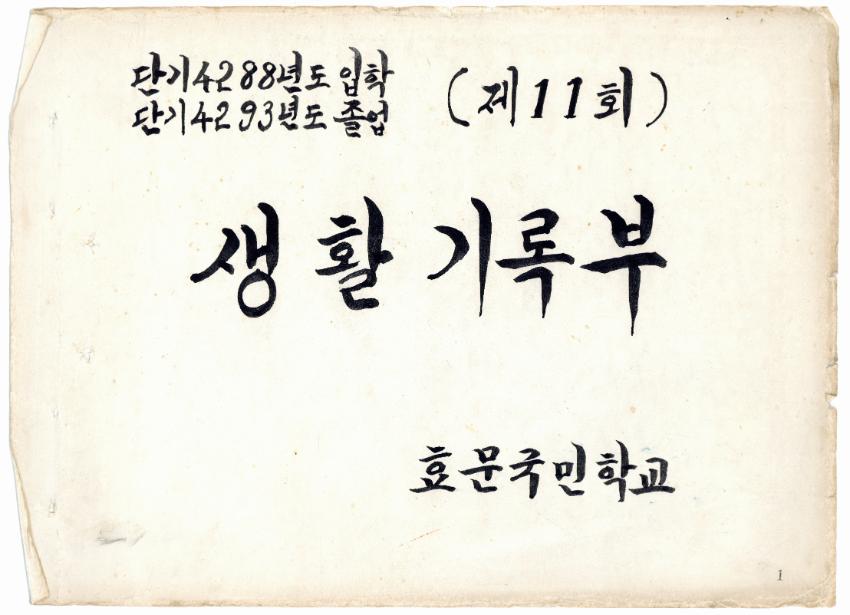 단기4288년도 입학
단기4293년도 졸업
(제11회)
생활기록부
효문국민학교
1